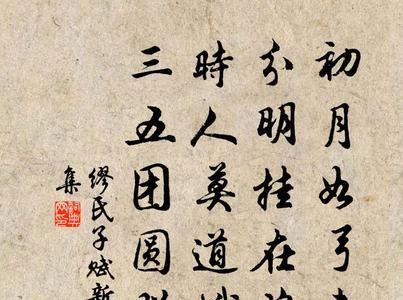 初月如弓
分明挂在
时人莫道
三五团圆
缪氏子赋新
集